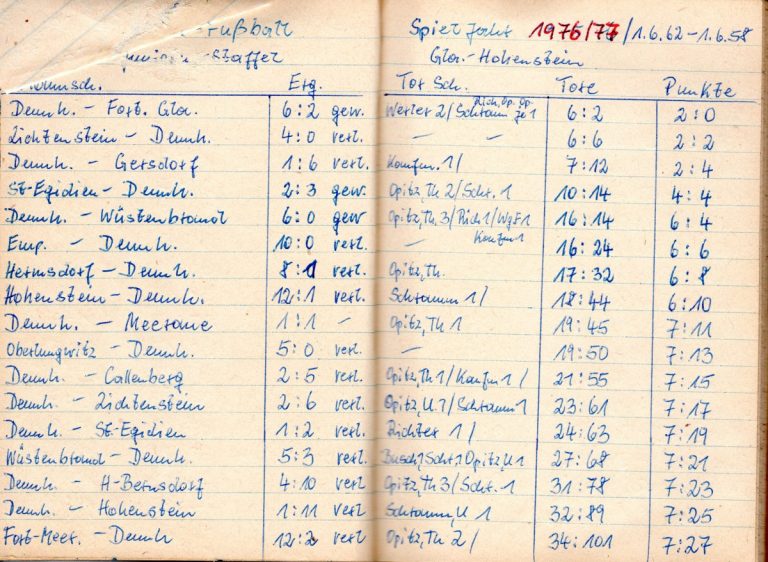 Fußball Spieljahr 1976/77 / 1.6.62 - 1.6.58
Staffel Gla.-Hohenstein
Mannsch. Erg. Tor Sch. Tore Punkte
Dennh. - Fort. Gla. 6:2 gew. Werler 2/ Schramm Rich. Op. Op. je 1 6:2 2:0
Lichtenstein - Dennh. 4:0 verl. — — 6:6 2:2
Dennh. - Gersdorf 1:6 verl. Kaufm. 1/ 7:12 2:4
St-Egidien - Dennh. 2:3 gew. Opitz, Th 2/ Schr. 1 10:14 4:4
Dennh. - Wüstenbrand 6:0 gew Opitz, Th. 3/ Rich 1/ Wgf 1 Kaufm 1 16:14 6:4
Emp. - Dennh. 10:0 verl. — 16:24 6:6
Hermsdorf - Dennh. 8:1 verl. Opitz, Th. 17:32 6:8
Hohenstein - Dennh. 12:1 verl. Schramm 1/ 18:44 6:10
Dennh. - Meerane 1:1 - Opitz, Th 1 19:45 7:11
Oberlungwitz - Dennh. 5:0 verl. — 19:50 7:13
Dennh. - Callenberg 2:5 verl. Opitz, Th 1/ Kaufm 1/ 21:55 7:15
Dennh. - Lichtenstein 2:6 verl. Opitz, U. 1/ Schramm 1 23:61 7:17
Dennh. - St-Egidien 1:2 verl. Richter 1/ 24:63 7:19
Wüstenbrand - Dennh. 5:3 verl. Busch 1 Schr. 1 Opitz, U 1 27:68 7:21
Dennh. - H-Bernsdorf 4:10 verl Opitz, Th 3/ Schr. 1 31:78 7:23
Dennh. - Hohenstein 1:11 verl. Schramm, U 1 32:89 7:25
Fort-Meer. - Dennh 12:2 verl Opitz, Th 2/ 34:101 7:27